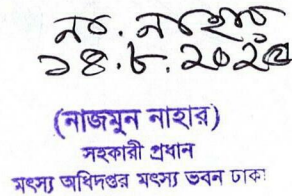 ১৪.৮.২০২৫
(নাজমুন নাহার)
সহকারী প্রধান
মৎস্য অধিদপ্তর মৎস্য ভবন ঢাকা